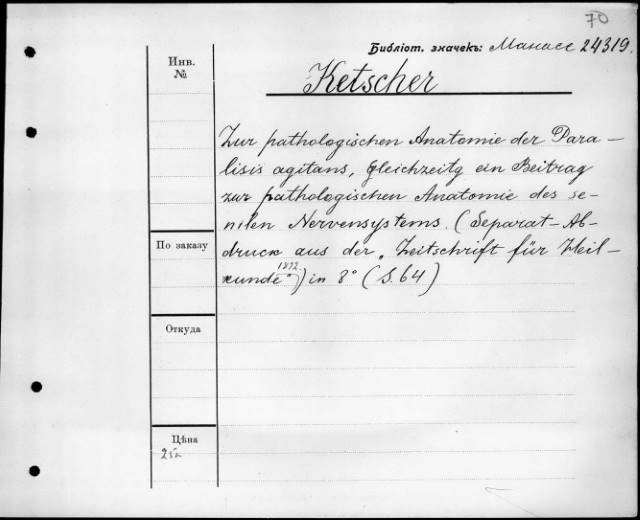 70
Библіот. значекъ: Манасс 24319.
Инв.
№
Ketscher
Zur pathologischen Anatomie der Para-
lisis agitans, gleichzeitg ein Beitrag
zur pathologischen Anatomie des se-
nilen Nervensystems. (Separat-Ab-
druck aus der „Zeitschrift für Heil-
kunde" 1892) in 8° (S. 64)
По заказу
Откуда
Цѣна